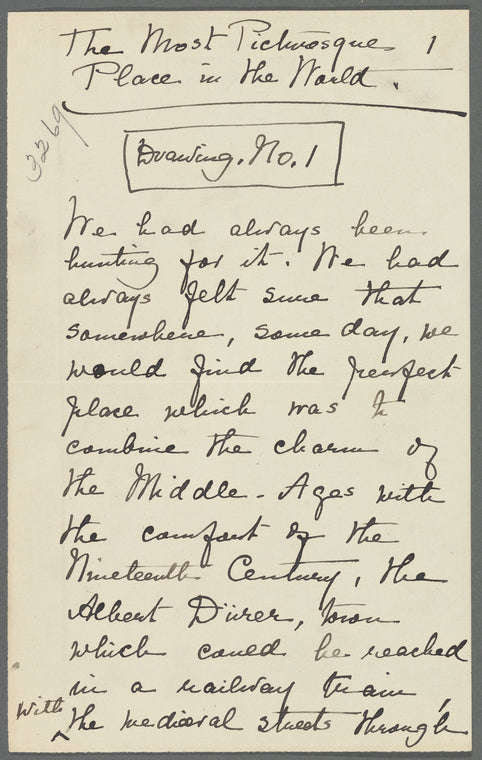 The Most Picturesque 1
Place in the World.
3269
Drawing. No. 1
We had always been
hunting for it. We had
always felt sure that
somewhere, some day, we
would find the perfect
place which was to
combine the charm of
the Middle-Ages with
the comfort of the
Nineteenth Century, the
Albert Dürer, town
which could be reached
in a railway train,
with the mediæval streets through